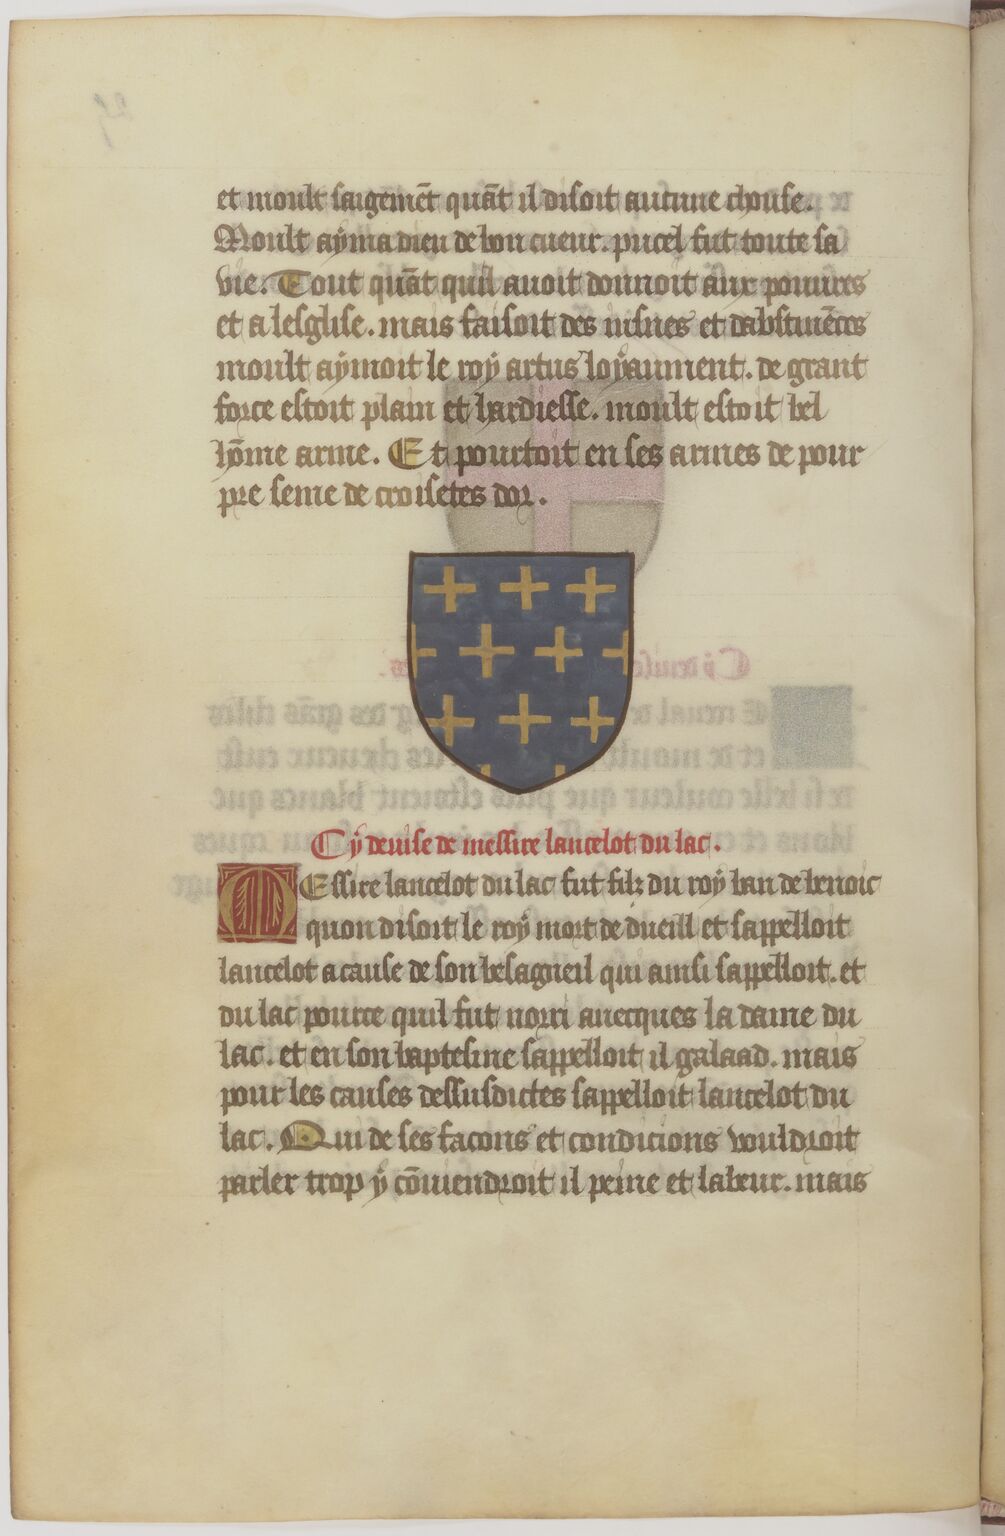 et moult saigemēt quāt il disoit aucune chouse.
Moult aÿma dieu de bon cueur. pucel fut toute sa
vie. Tout quāt quil auoit donnoit aux pouures
et a lesglise. mais faisoit des iusnes et dabstinēces
moult aÿmoit le roÿ artus loÿaument. de grant
force estoit plain et hardiesse. moult estoit bel
hōme arme. Et pourtoit en ses armes de pour
pre seme de croisetes dor.
Cÿ deuise de messire lancelot du lac.
MEssire lancelot du lac fut filz du roÿ ban de benoic
quon disoit le roÿ mort de dueill et sappelloit
lancelot a cause de son besagueil qui ainsi sappelloit. et
du lac pource quil fut norri auecques la dame du
lac. et en son baptesme sappelloit il galaad. mais
pour les causes dessusdictes sappelloit lancelot du
lac. Qui de ses facons et condicions vouldroit
parler trop ÿ cōuiendroit il peine et labeur. mais